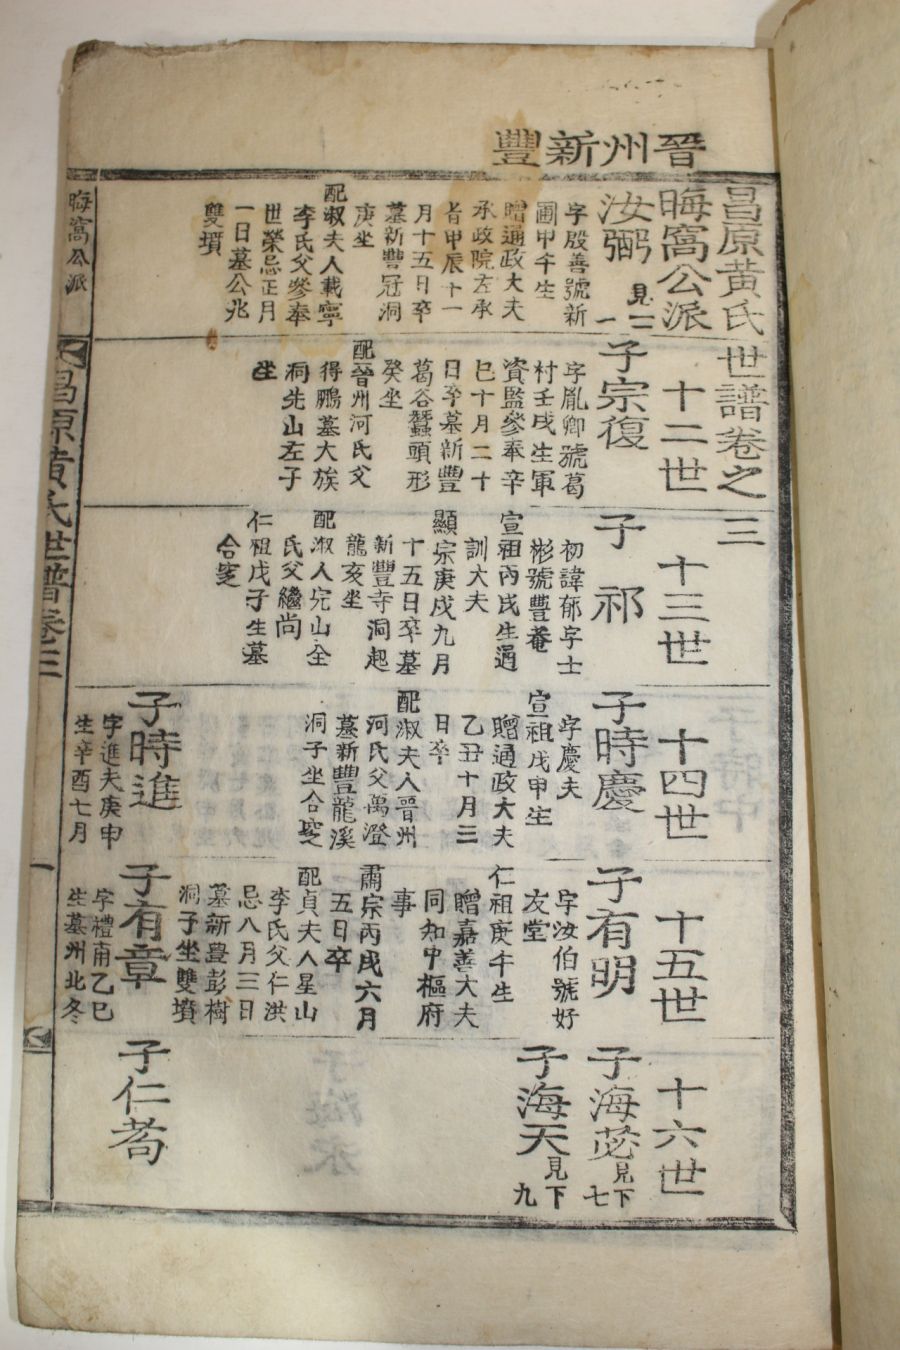 晉州新豐
昌原黃氏世譜卷之三
晦窩公派
十二世
十三世
十四世
十五世
十六世
汝弼
見二
一
字殷善號新
圃甲午生
贈通政大夫
承政院左承
旨甲辰十一
月十五日卒
墓新豐冠洞
庚坐
配淑夫人載寧
李氏父參奉
世榮忌正月
一日墓公兆
雙墳
子宗復
字胤卿號葛
村壬戌生軍
資監參奉辛
巳十月二十
日卒墓新豐
葛谷蠶頭形
癸坐
配晉州河氏父
得鵬墓大族
洞先山左子
坐
子祁
初諱郁字士
彬號豊菴
宣祖丙戌生通
訓大夫
顯宗庚戌九月
十五日卒墓
新豐寺洞起
龍亥坐
配淑人完山全
氏父繼尚
仁祖戊子生墓
合窆
子時慶
字慶夫
宣祖戊申生
贈通政大夫
乙丑十月三
日卒
配淑夫人晉州
河氏父萬澄
墓新豐龍溪
洞子坐合窆
子時進
字進夫庚申
生辛酉七月
子有明
字汝伯號好
友堂
仁祖庚午生
贈嘉善大夫
同知中樞府
事
肅宗丙戌六月
五日卒
配貞夫人星山
李氏父仁洪
忌八月三日
墓新豊彭樹
洞子坐雙墳
子有章
字禮甫乙巳
生墓州北冬
子海苾
見下
七
子海天
見下
九
子仁耉
晦窩公派
昌原黃氏世譜卷三
一